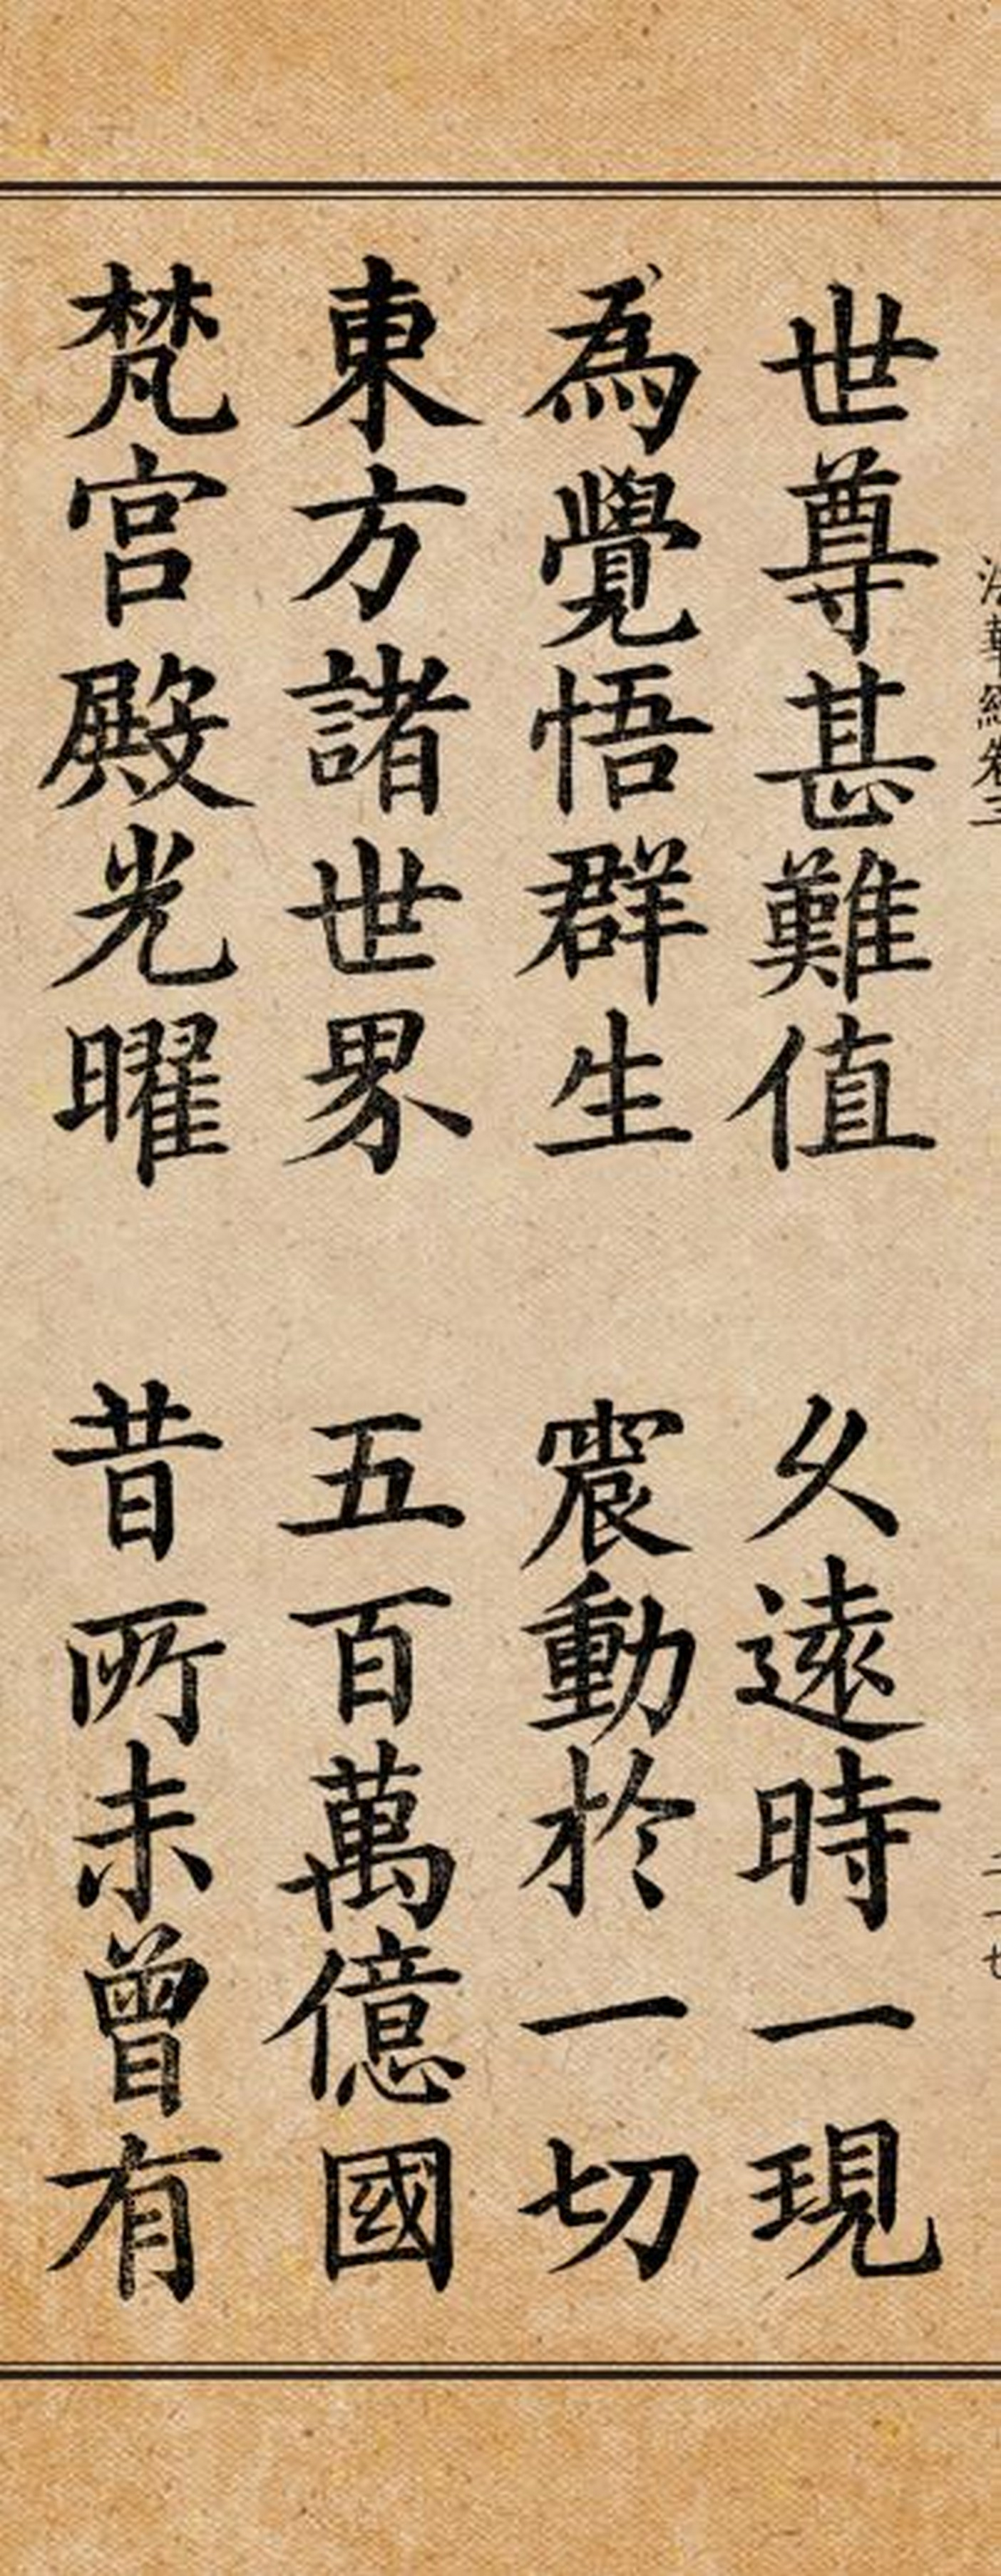 法華經卷三
世尊甚難值 久遠時一現
為覺悟群生 震動於一切
東方諸世界 五百萬億國
梵宮殿光曜 昔所未曾有